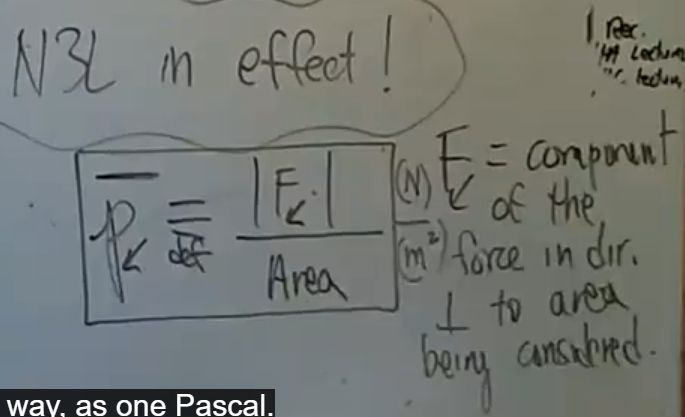 N3L in effect!
1 Rec.
p↙ ≡ def |F↙| / Area
(N) / (m²)
F↙ = component
of the
force in dir.
⊥ to area
being considered.
way, as one Pascal.